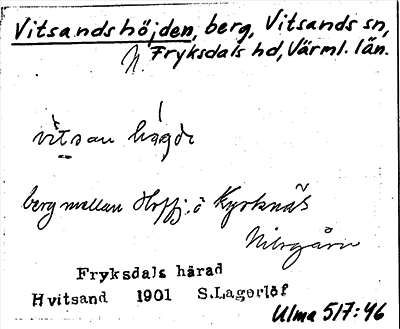 Vitsandshöjden, berg, Vitsands sn,
N. Fryksdals hd, Värml. län.
vitsan högde
berg mellan Hoffj. o Kyrknäs
Fryksdals härad
Hvitsand 1901 S.Lagerlöf
Ulma 517:46